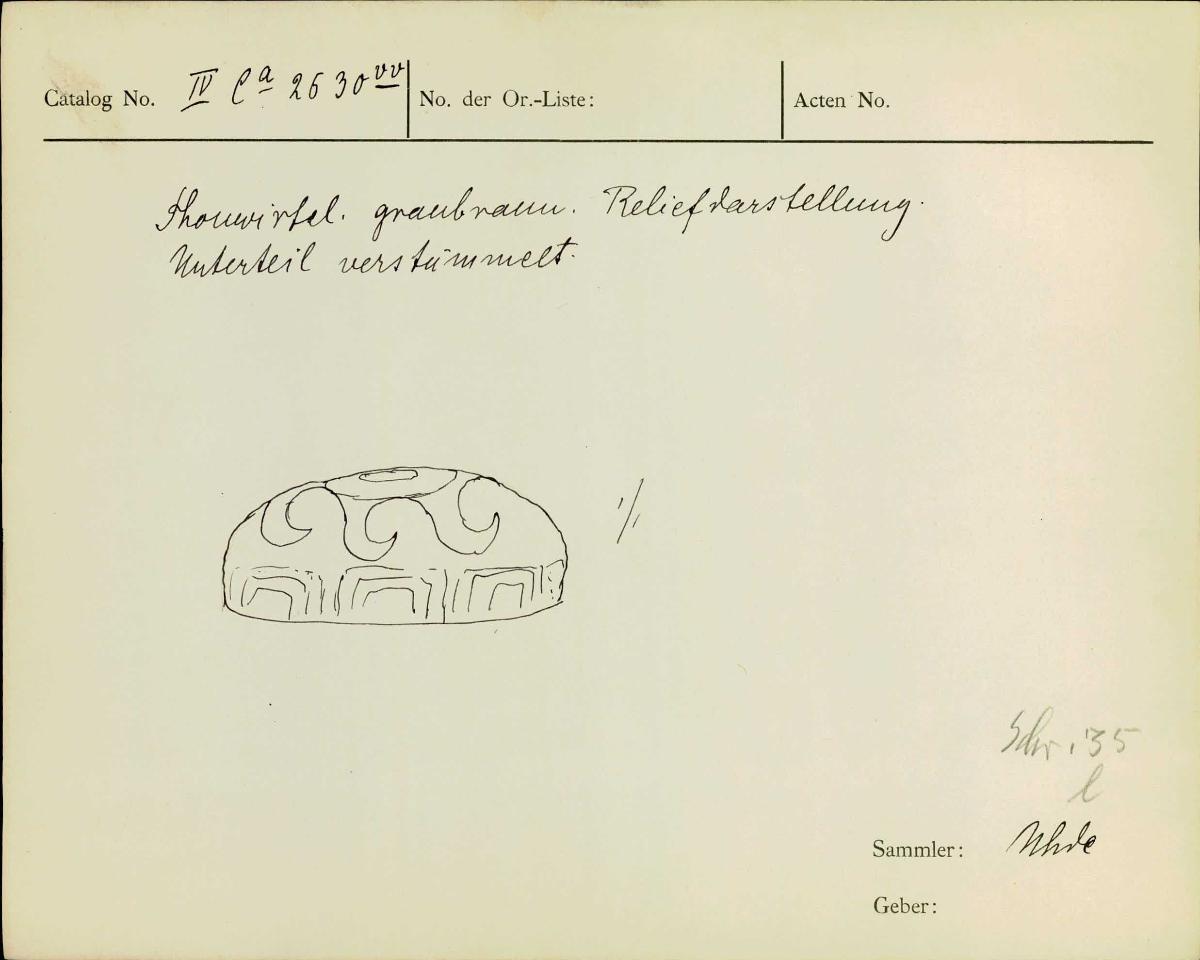 Catalog No. IV Ca 2630 vv No. der Or.-Liste: Acten No.
Thonwirtel. graubraun. Reliefdarstellung.
Unterteil verstümmelt.
1/1
Schr. 35
l
Sammler: Uhde
Geber: